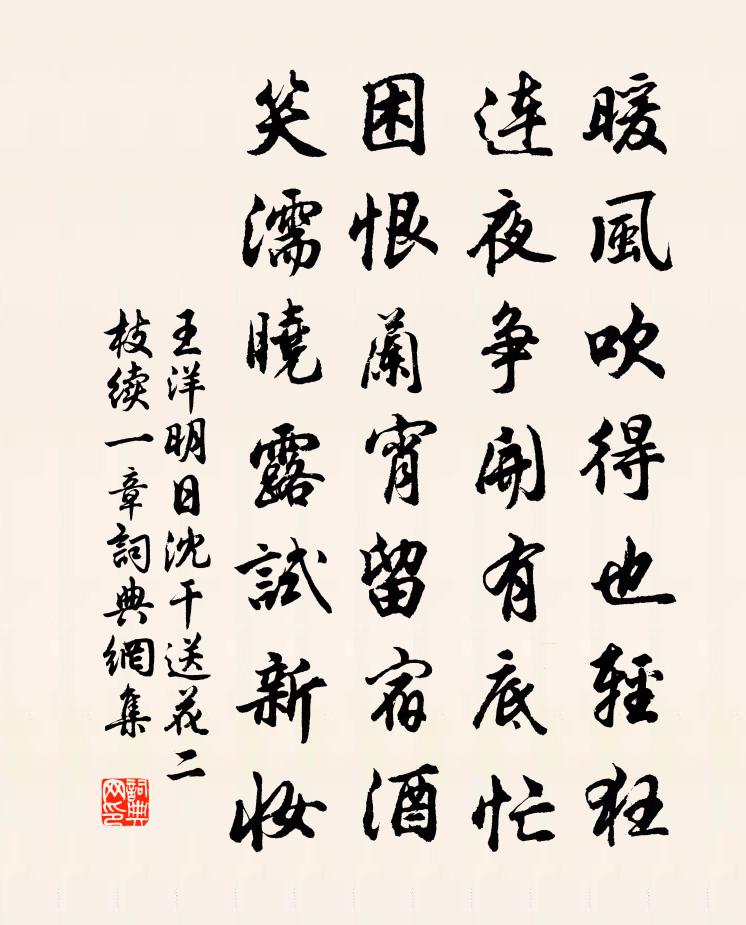 暖風吹得也輕狂
連夜争開有底忙
困恨蘭宵留宿酒
笑濡曉露試新妝
王洋明日沈干送花二
枝續一章詞典網集
詞典
网印